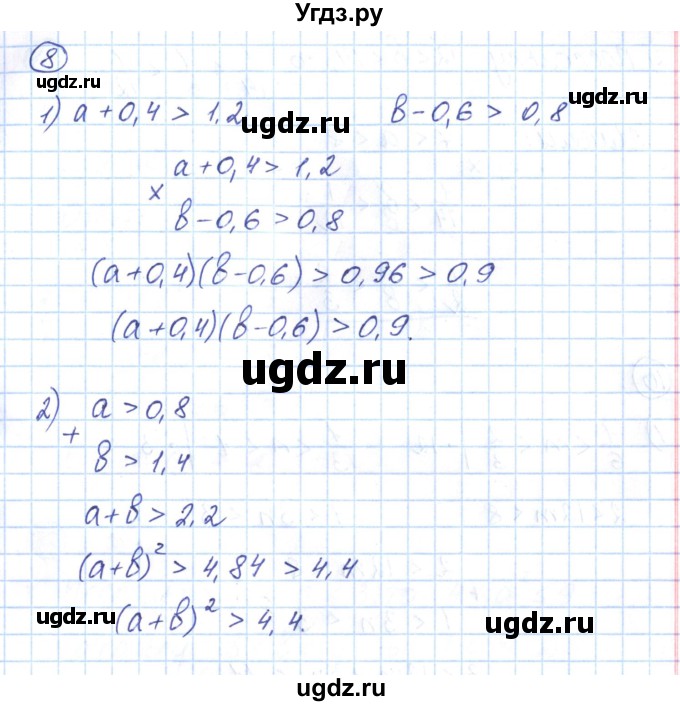 Угдз.ру
8
ugdz.ru
1) a+0,4 > 1,2
ugdz.ru
b-0,6 > 0,8
ugdz.ru
a+0,4 > 1,2
×
b-0,6 > 0,8
(a+0,4)(b-0,6) > 0,96 > 0,9
(a+0,4)(b-0,6) > 0,9.
ugdz.ru
2) a > 0,8
+
b > 1,4
a+b > 2,2
(a+b)² > 4,84 > 4,4
ugdz.ru
(a+b)² > 4,4.
ugdz.ru
ugdz.ru